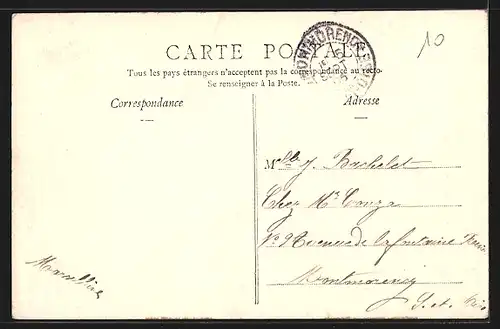 10
CARTE POSTALE
Tous les pays étrangers n'acceptent pas la correspondance au recto.
Se renseigner à la Poste.
Correspondance
Adresse
MONTMORENCY
Mlle J. Bachelet
Chez Mr
No 9 Avenue de la fontaine
Montmorency
S. et Oise